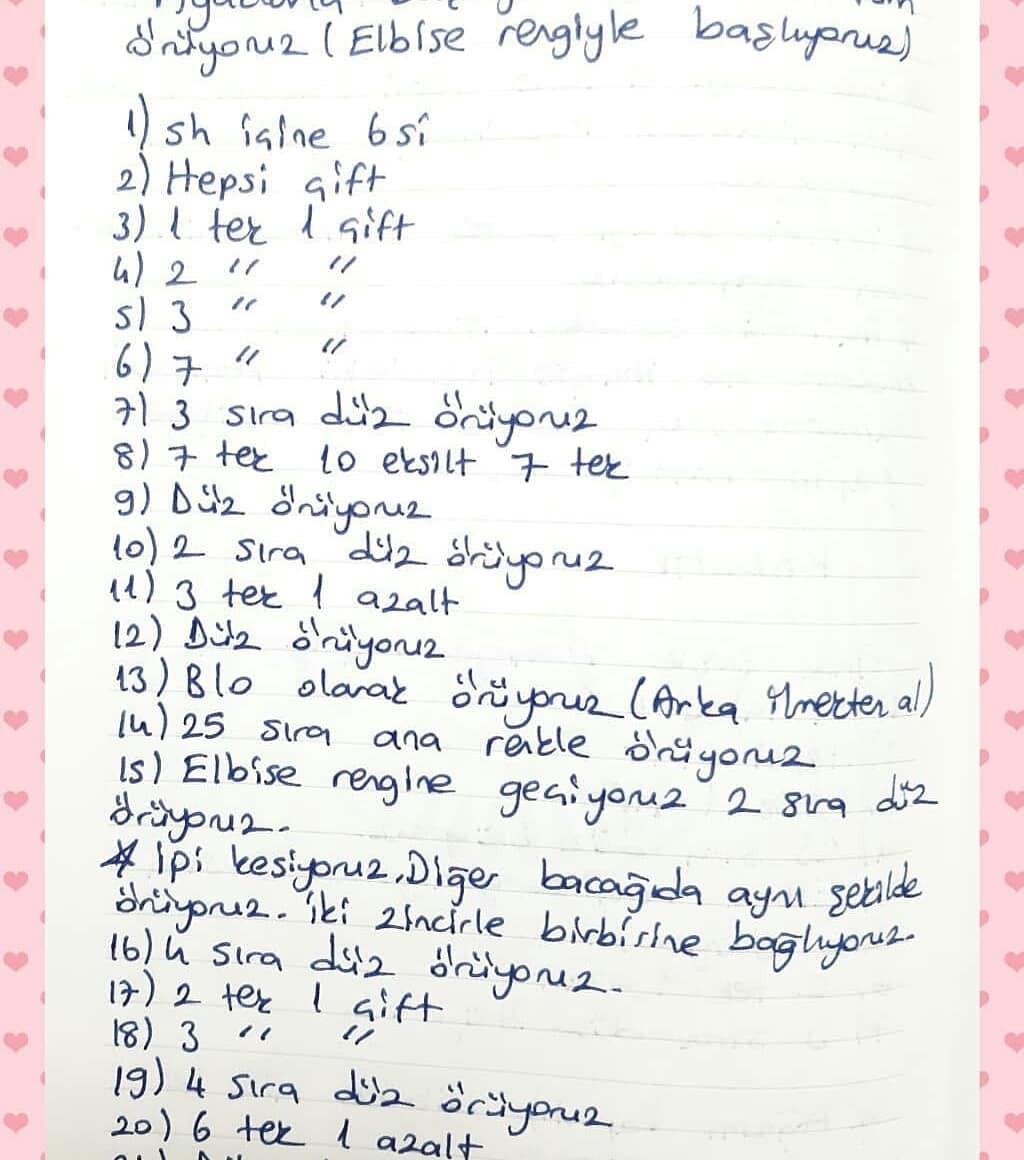 örüyoruz (Elbise rengiyle başlıyoruz)
1) sh içine 6 sı
2) Hepsi çift
3) 1 tek 1 çift
4) 2 " "
5) 3 " "
6) 7 " "
7) 3 sıra düz örüyoruz
8) 7 tek 10 eksilt 7 tek
9) Düz örüyoruz
10) 2 sıra düz örüyoruz
11) 3 tek 1 azalt
12) Düz örüyoruz
13) Blo olarak örüyoruz (Arka ilmekten al)
14) 25 sıra ana renkle örüyoruz
15) Elbise rengine geçiyoruz 2 sıra düz
örüyoruz.
* İpi kesiyoruz. Diğer bacağıda aynı şekilde
örüyoruz. iki zincirle birbirine bağlıyoruz.
16) 4 sıra düz örüyoruz.
17) 2 tek 1 çift
18) 3 " "
19) 4 sıra düz örüyoruz
20) 6 tek 1 azalt